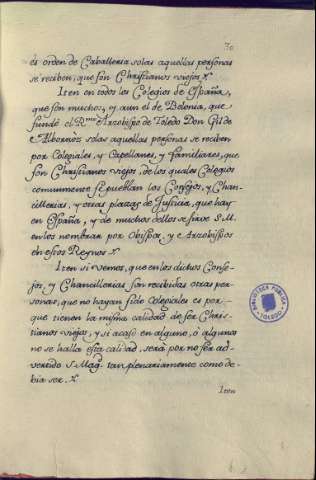 30
és orden de Caballeria solas aquellas personas
se reciben, que son Christianos viejos.
Iten en todos los Colegios de España,
que son muchos, y aun el de Bolonia, que
fundó el R.mo Arzobispo de Toledo Don Gil de
Albornòz solas aquellas personas se reciben
por Colegiales, y Capellanes, y Familiares, que
son Christianos viejos, de los quales Colegios
comunmente se pueblan los Consejos, y Chan-
cillerias, y otras plazas de Justicia, que hay
en España, y de muchos dellos se sirve S. M.
en los nombrar por Obispos, y Arzobispos
en estos Reynos.
Iten si vemos, que en los dichos Conse-
jos, y Chancillerias son recibidas otras per-
sonas, que no hayan sido Colegiales es por-
que tienen la misma calidad de ser Chris-
tianos viejos, y si acaso en alguno, ó algunos
no se halla esta calidad, será por no ser ad-
vertido S. Mag.d tan plenariamente como de-
bia ser.
Iten
BIBLIOTECA PUBLICA
TOLEDO